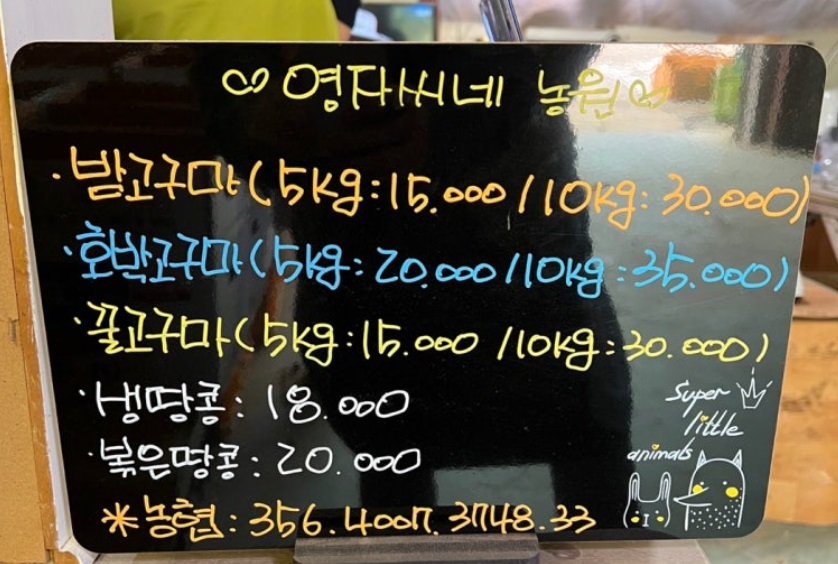 영자씨네 농원
·밤고구마(5kg:15.000/10kg:30.000)
·호박고구마(5kg:20.000/10kg:35.000)
·꿀고구마(5kg:15.000/10kg:30.000)
·생땅콩:18.000
·볶은땅콩:20.000
Super
little
animals
*농협:356.4007.3748.33